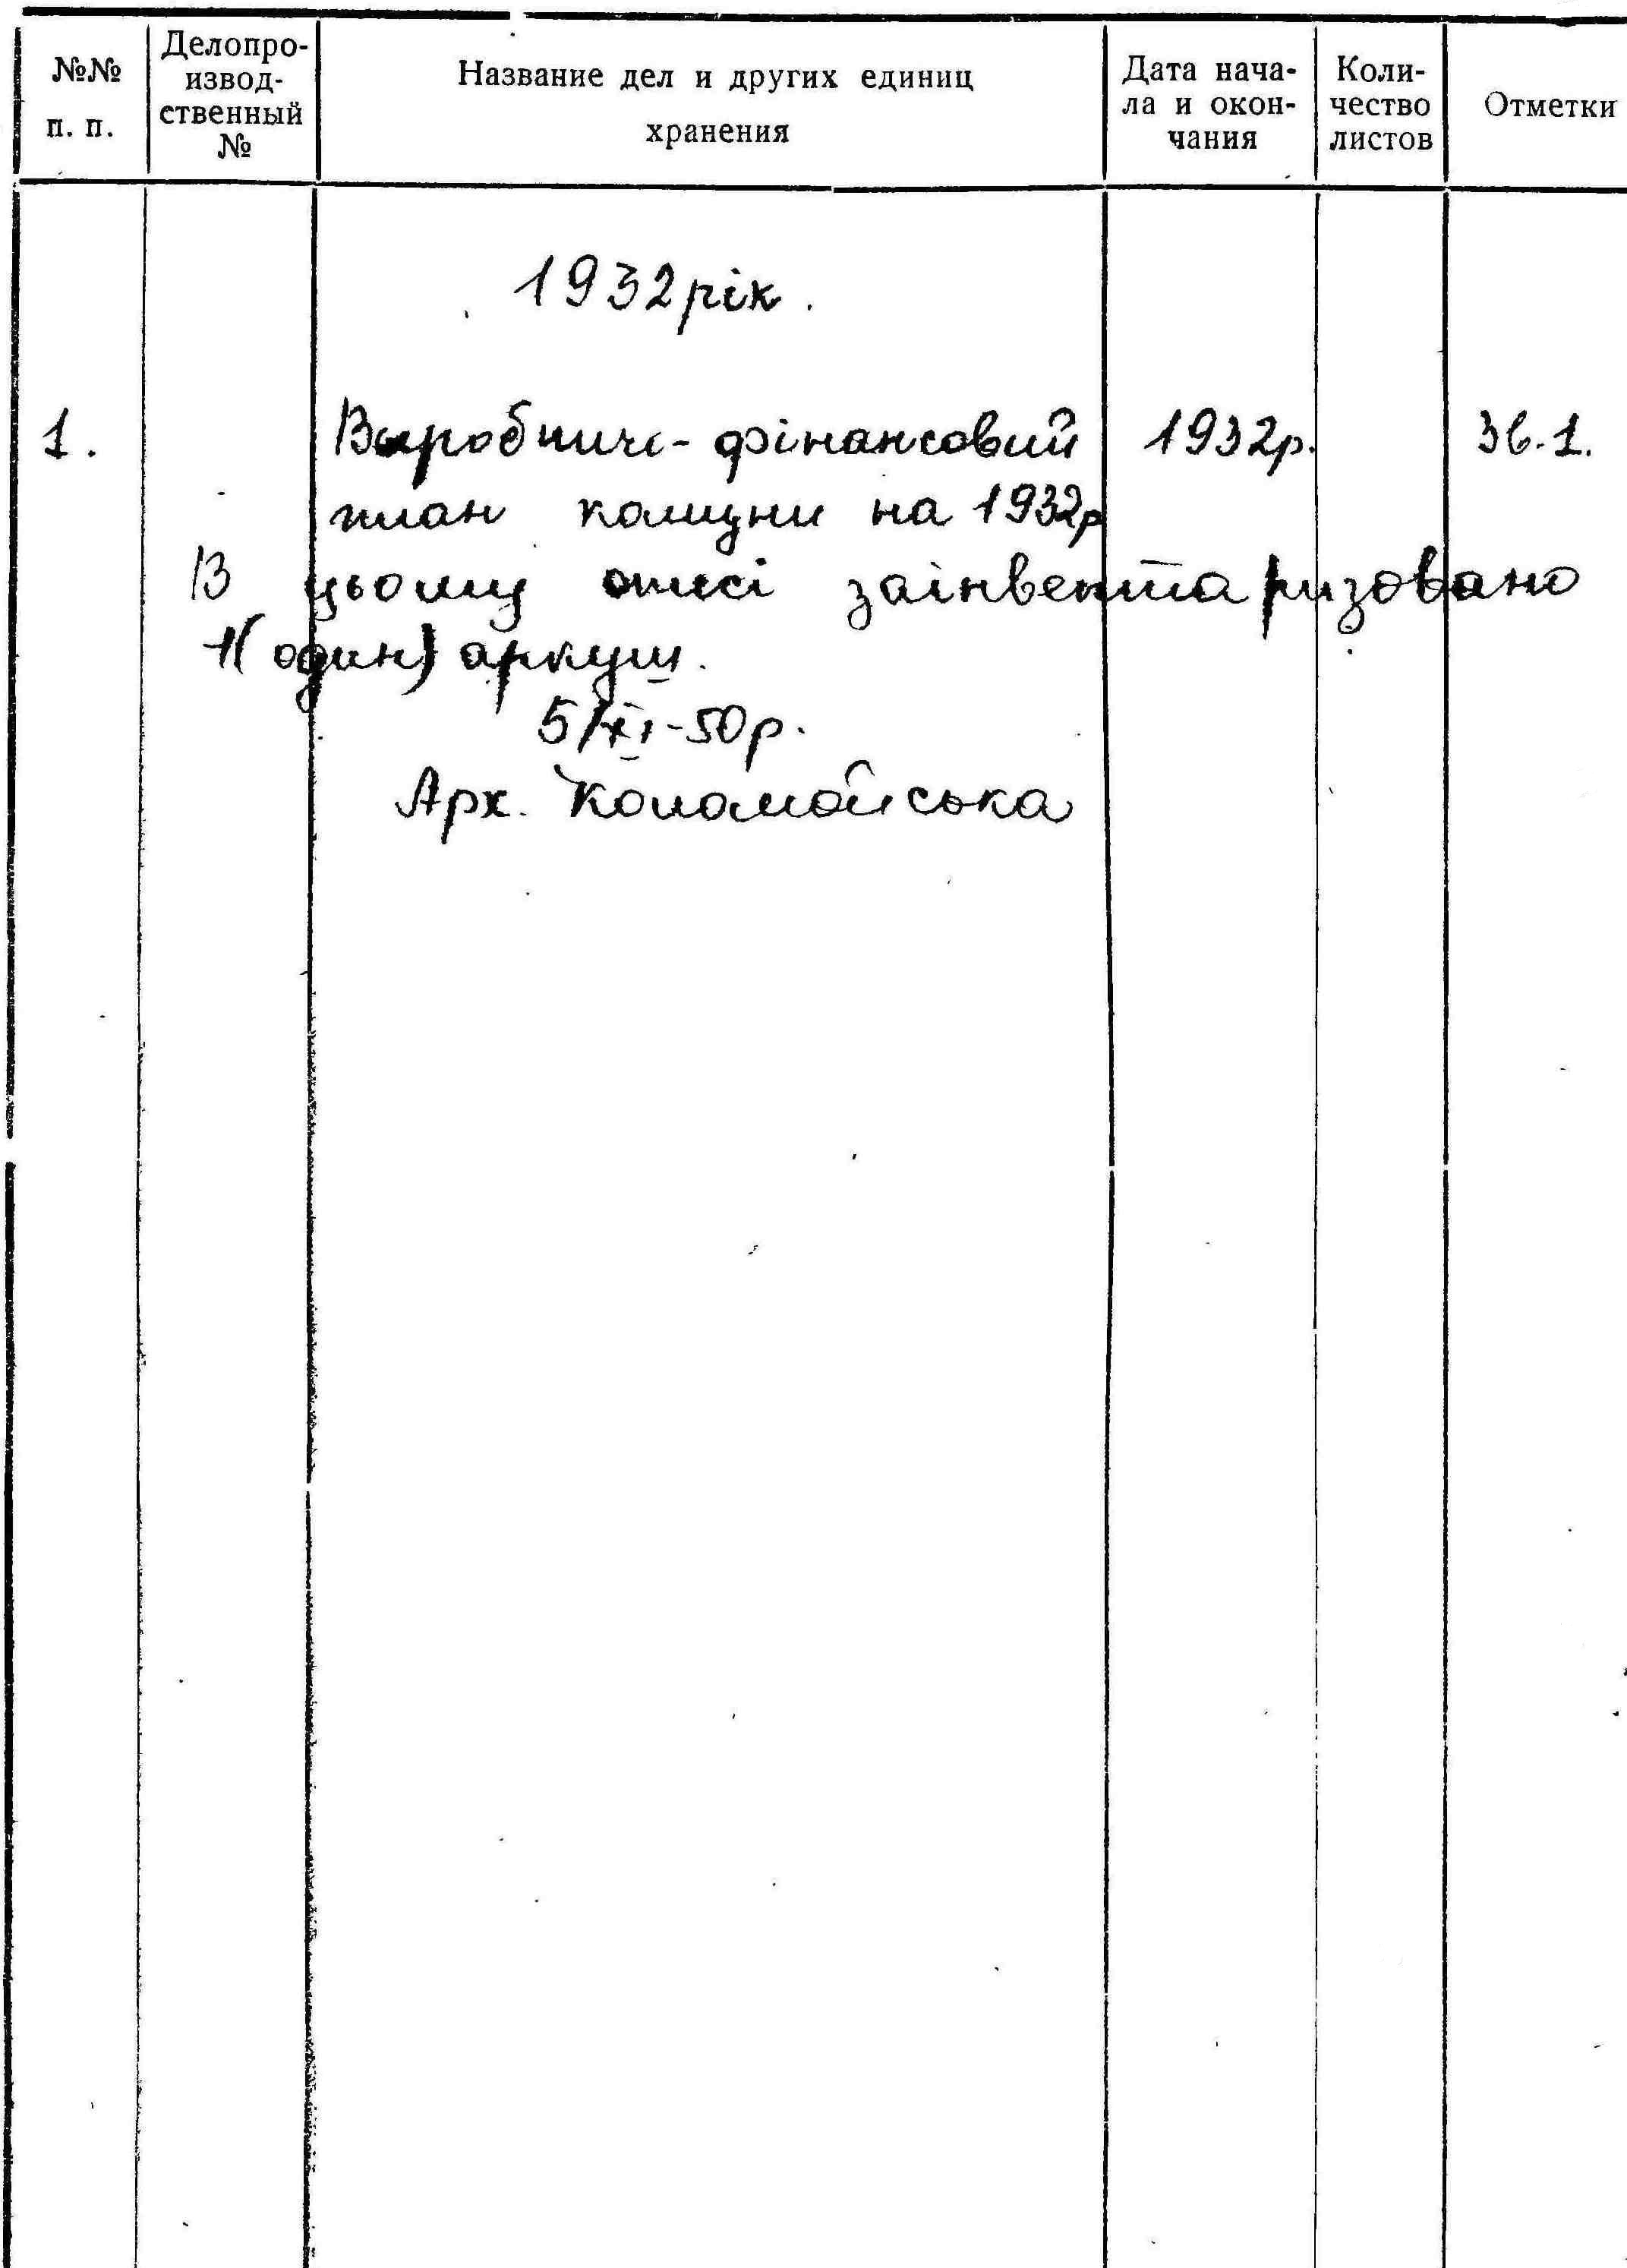 №№ п. п.
Делопро-
извод-
ственный
№
Название дел и других единиц
хранения
Дата нача-
ла и окон-
чания
Коли-
чество
листов
Отметки
1932 рік.
1. Виробничо-фінансовий 1932р. Зв.1.
план комуни на 1932р
В цьому описі заінвентаризовано
1(один) аркуш.
5/XI-50р.
Арх. Коломойська